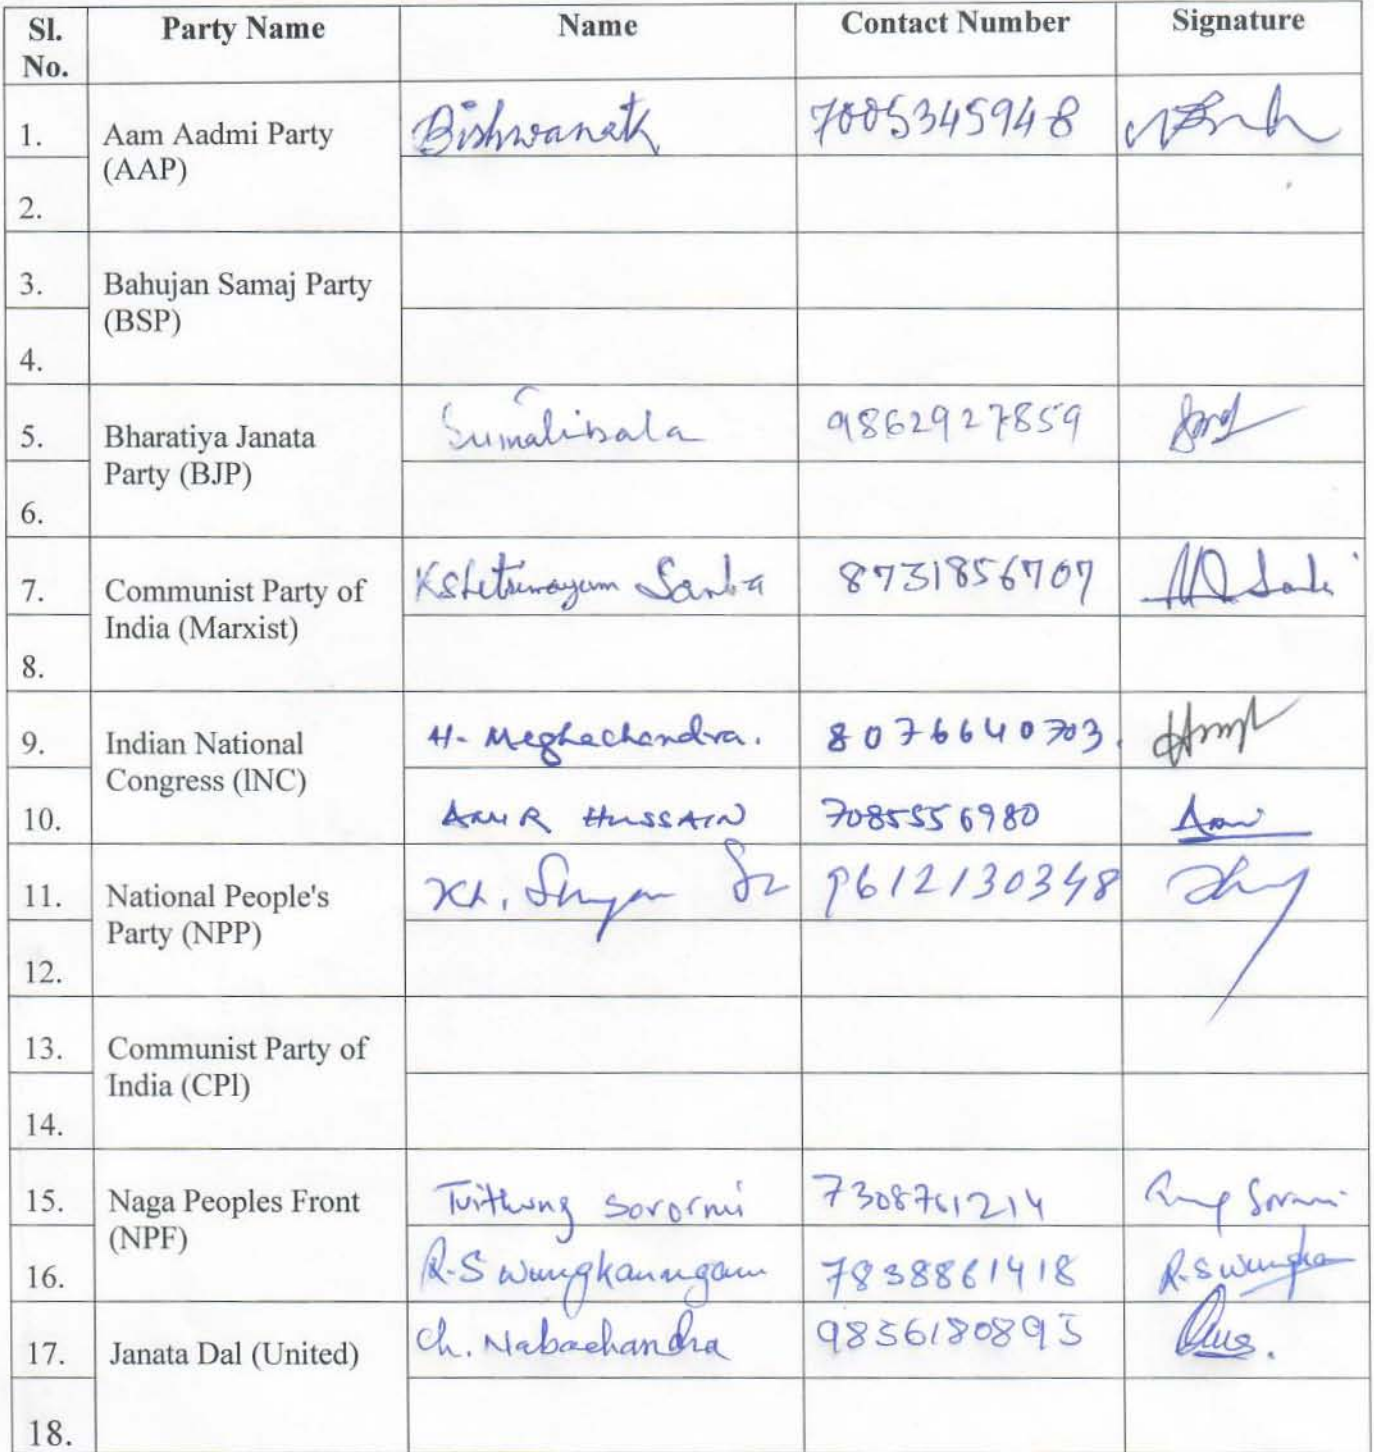 Sl. No. Party Name Name Contact Number Signature
1. Aam Aadmi Party (AAP) Bishwanath 7005345948
2.
3. Bahujan Samaj Party (BSP)
4.
5. Bharatiya Janata Party (BJP) Sumatibala 9862927859
6.
7. Communist Party of India (Marxist) Kshetrimayum Santa 8731856707
8.
9. Indian National Congress (lNC) H. Meghachandra. 8076640703.
10. AMIR HUSSAIN 7085556980
11. National People's Party (NPP) Kh. Shyam 9612130348
12.
13. Communist Party of India (CPl)
14.
15. Naga Peoples Front (NPF) Tuithung Sorormi 7308761214
16. R.S wungkanngam 7838861418
17. Janata Dal (United) Ch. Nabachandra 9856180895
18.